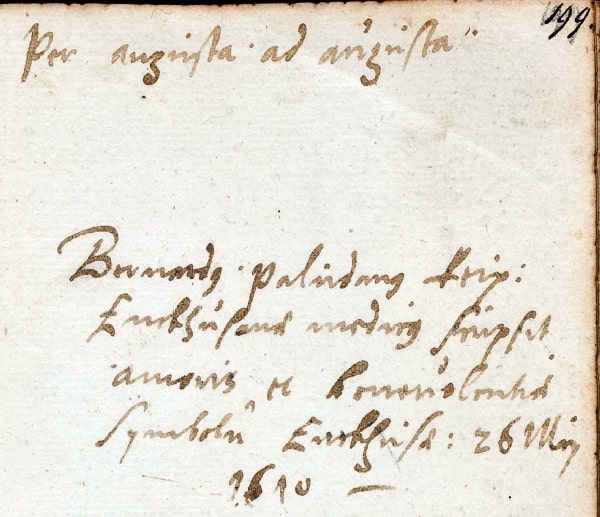 199.
Per angusta ad augusta
Bernardus Paludanus Reip:
Enckhusanae medicus scripsit
amoris et benevolentiae
symbolū Enckhusae: 26 Maij
1610